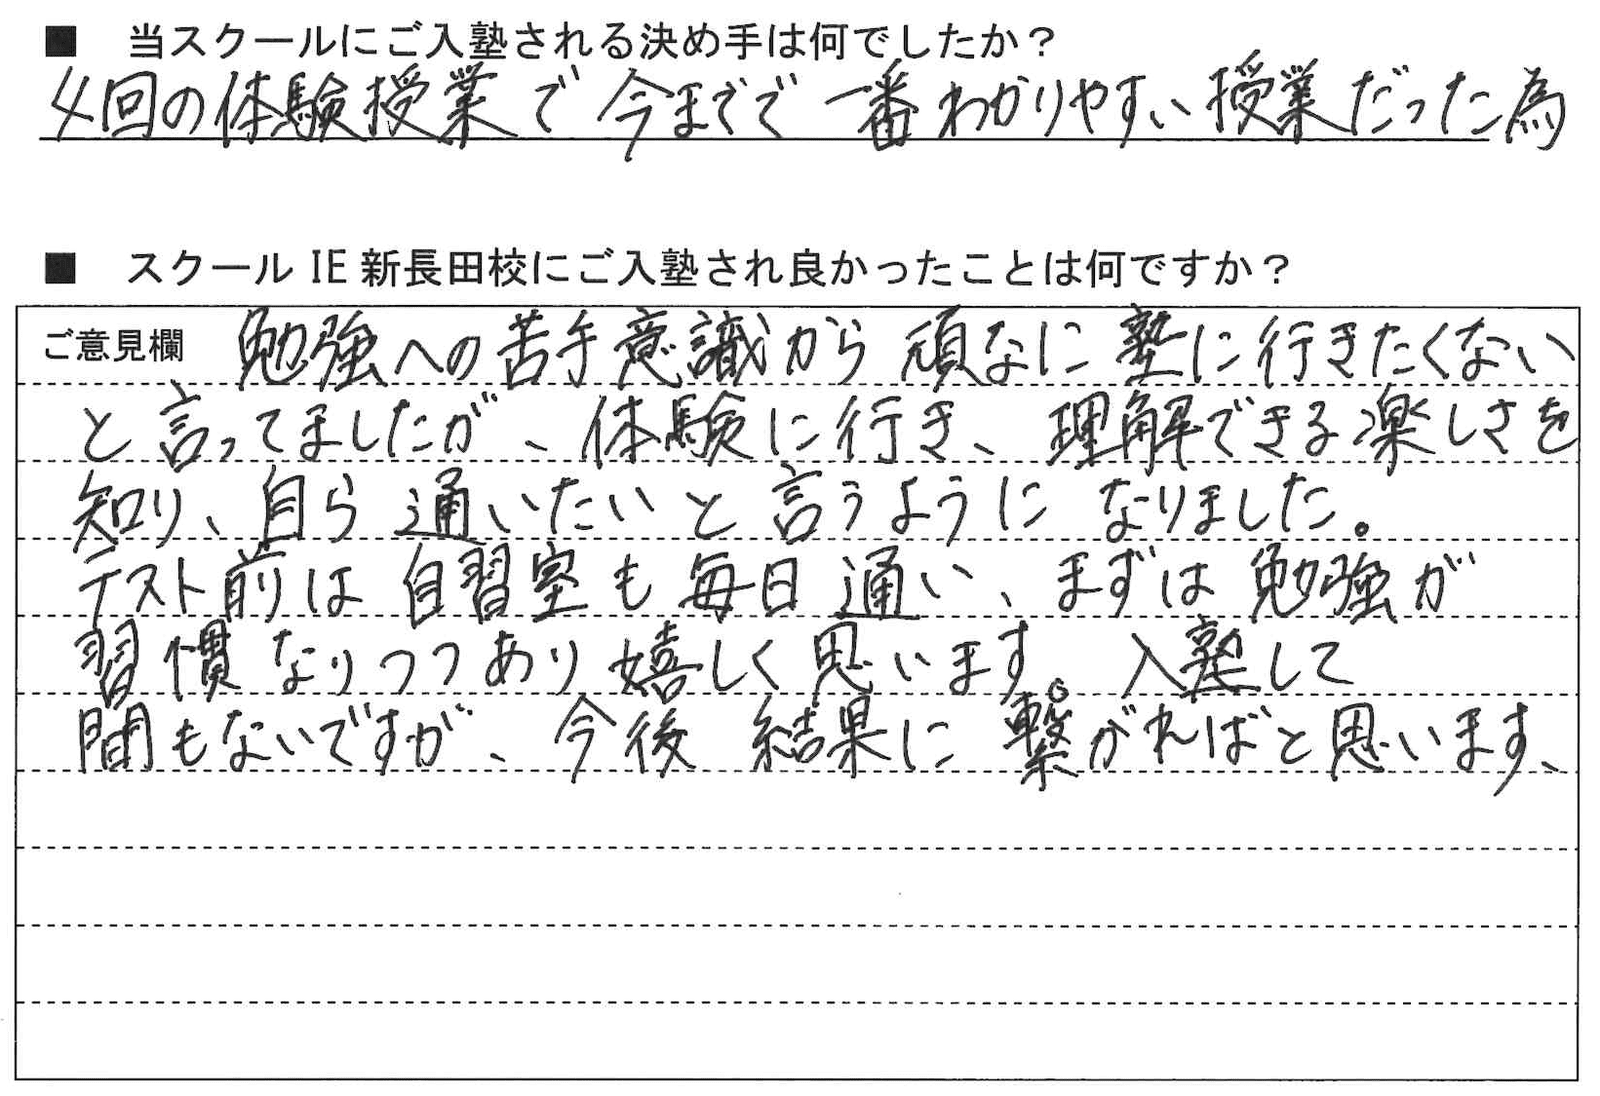 ■ 当スクールにご入塾される決め手は何でしたか?
4回の体験授業で今までで一番わかりやすい授業だった為
■ スクール IE 新長田校にご入塾され良かったことは何ですか?
ご意見欄 勉強への苦手意識から頑なに塾に行きたくない
と言ってましたが、体験に行き、理解できる楽しさを
知り、自ら通いたいと言うようになりました。
テスト前は自習室も毎日通い、まずは勉強が
習慣なりつつあり嬉しく思います。入塾して
間もないですが、今後結果に繋がればと思います、